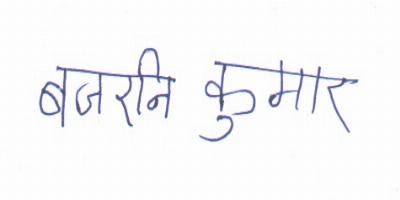 बजरनि कुमार